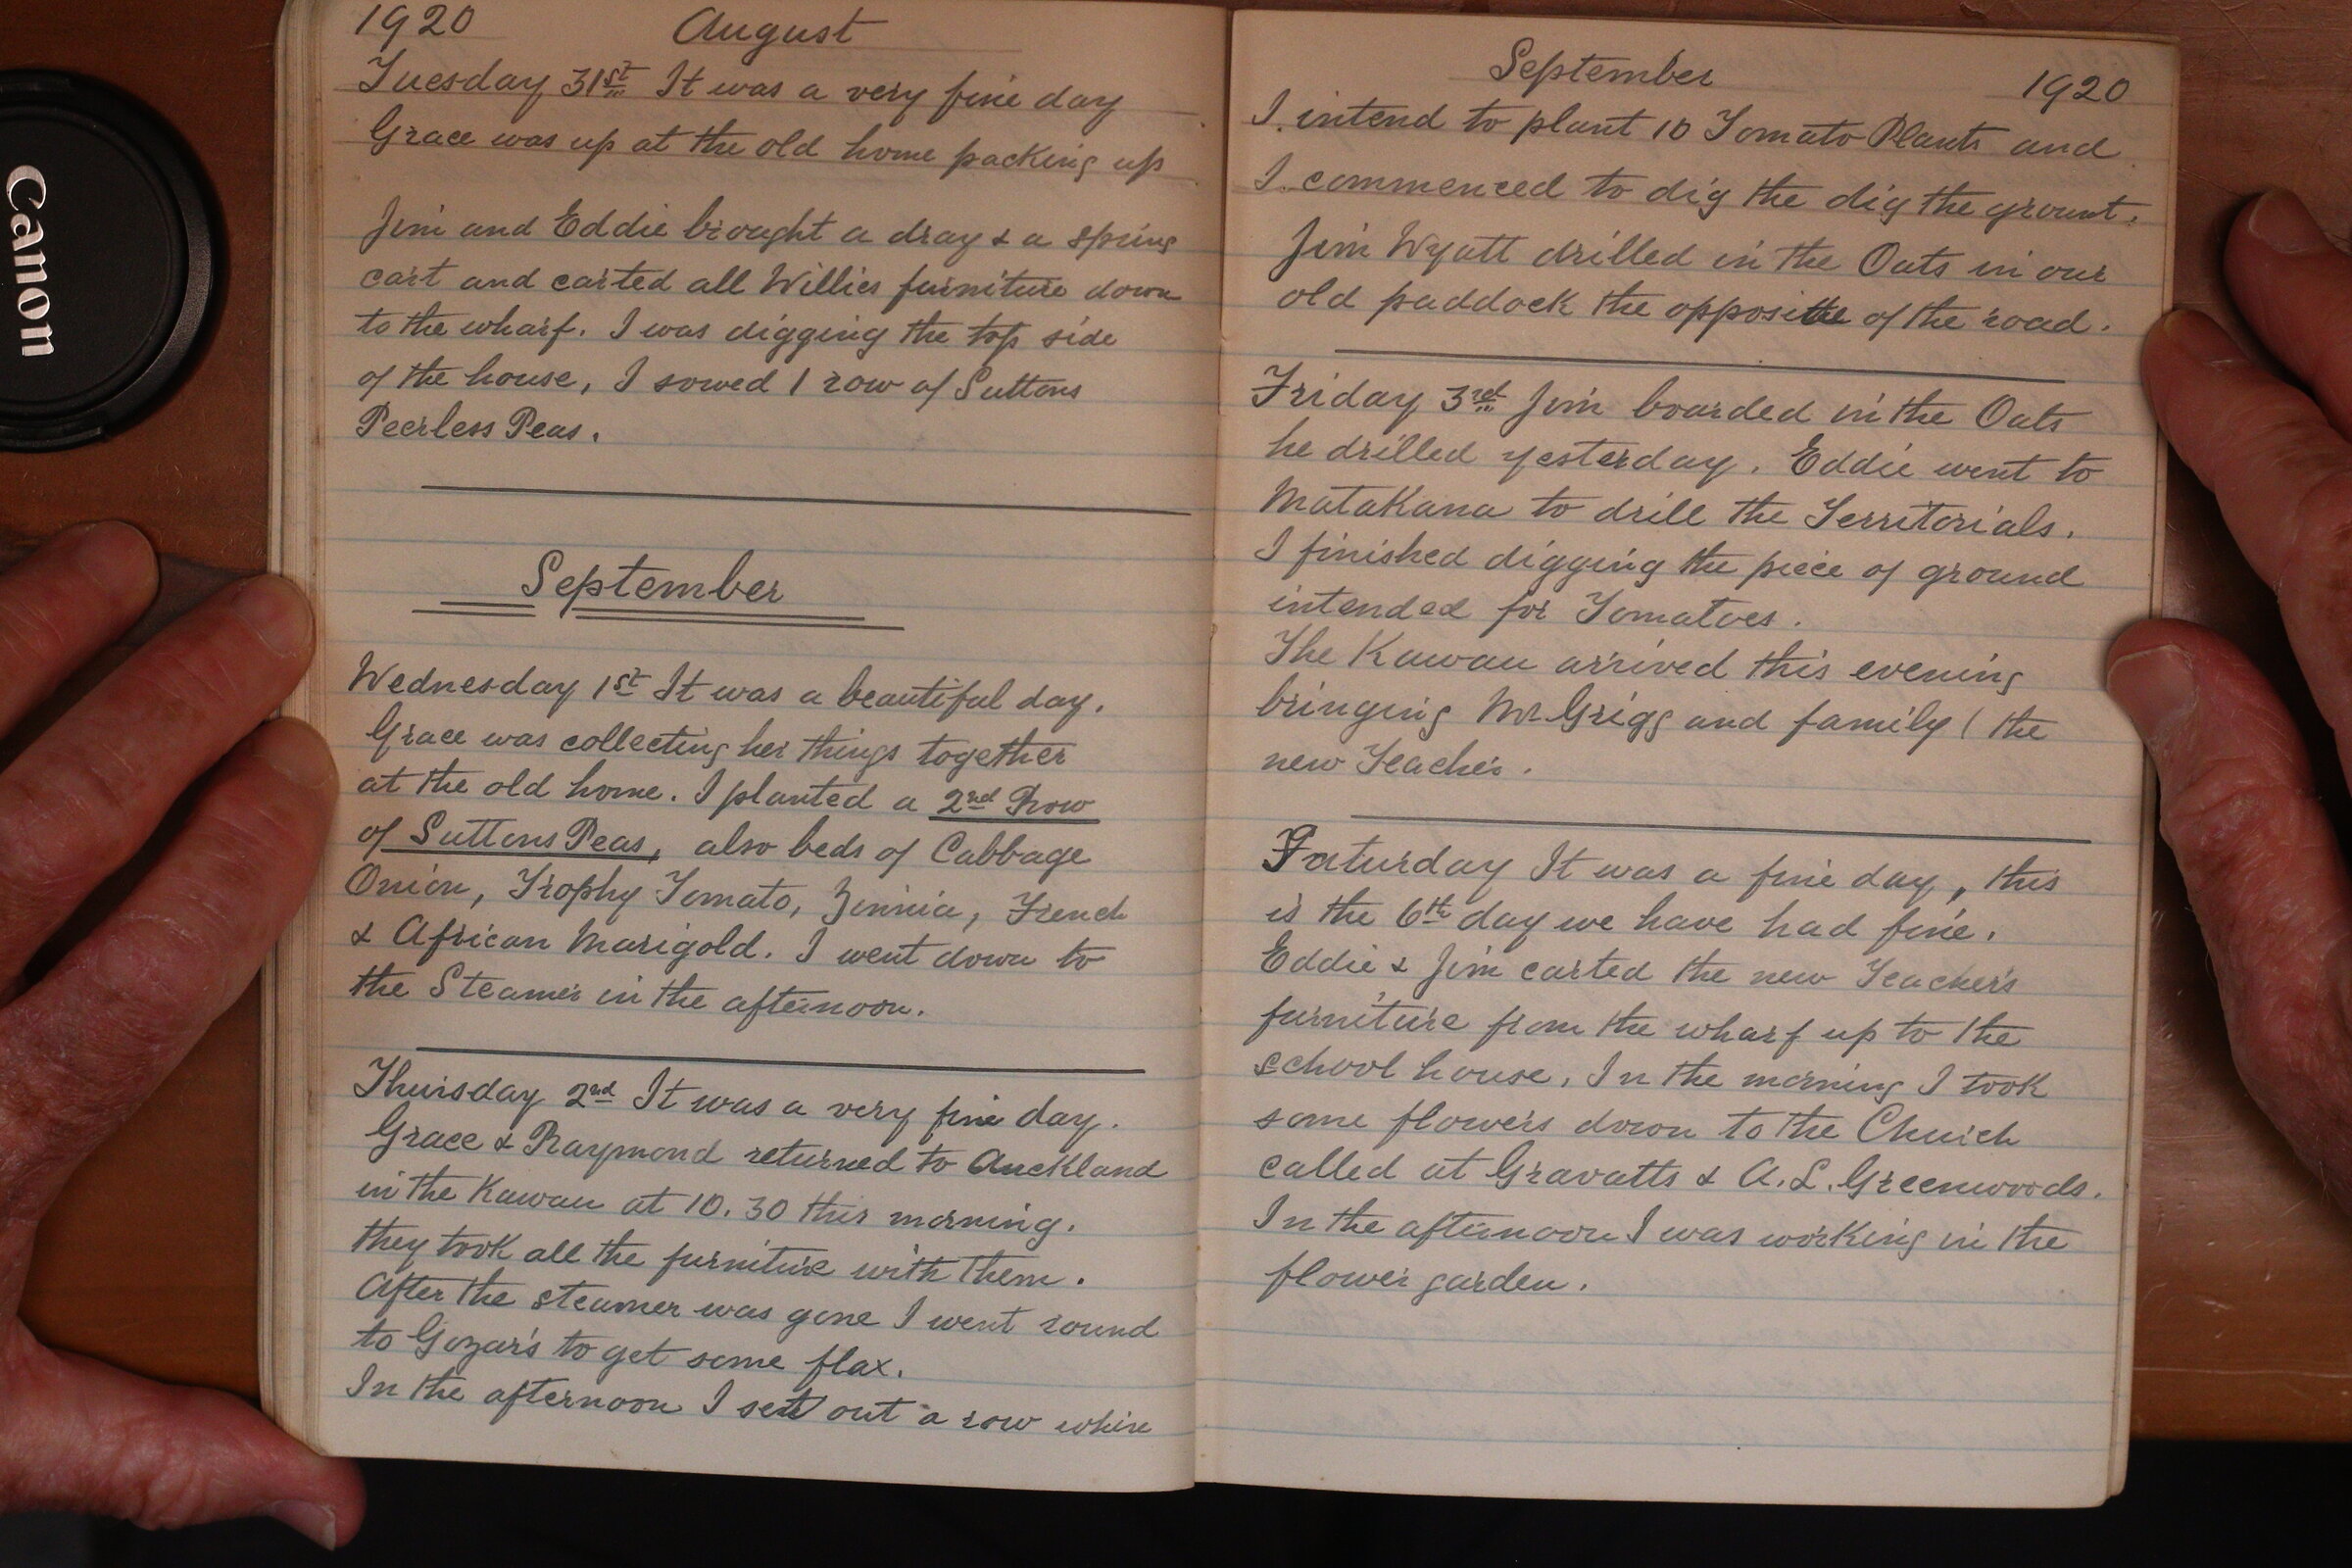 Canon
1920 August
Tuesday 31st It was a very fine day
Grace was up at the old home packing up
Jim and Eddie brought a dray & a spring
cart and carted all Willies furniture down
to the wharf. I was digging the top side
of the house, I sowed 1 row of Suttons
Peerless Peas.
September
Wednesday 1st It was a beautiful day.
Grace was collecting her things together
at the old home. I planted a 2nd Row
of Suttons Peas, also beds of Cabbage
Onion, Trophy Tomato, Zinnia, French
& African Marigold. I went down to
the Steamer in the afternoon.
Thursday 2nd It was a very fine day.
Grace & Raymond returned to Auckland
in the Kawau at 10.30 this morning.
they took all the furniture with them.
After the steamer was gone I went round
to Gozar's to get some flax.
In the afternoon I set out a row where
September 1920
I intend to plant 10 Tomato Plants and
I commenced to dig the dig the grount.
Jim Wyatt drilled in the Oats in our
old paddock the opposite of the road.
Friday 3rd Jim boarded in the Oats
he drilled yesterday. Eddie went to
Matakana to drill the Territorials.
I finished digging the piece of ground
intended for Tomatoes.
The Kawau arrived this evening
bringing Mr Grigg and family ( the
new Teacher.
Saturday It was a fine day, this
is the 6th day we have had fine.
Eddie & Jim carted the new Teacher's
furniture from the wharf up to the
school house. In the morning I took
some flowers down to the Church
called at Gravatts & A.L. Greenwoods.
In the afternoon I was working in the
flower garden.